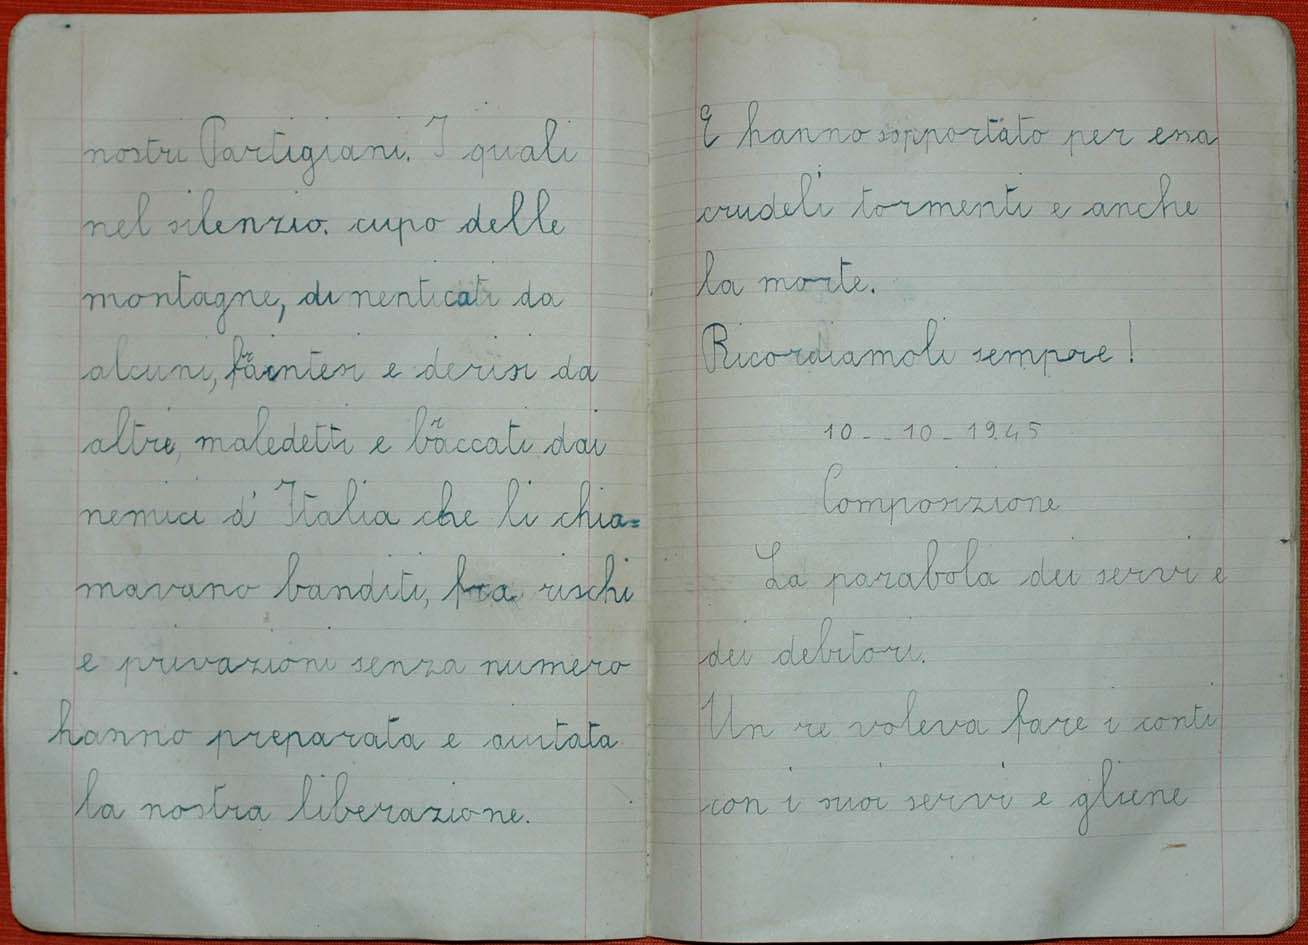 nostri Partigiani. I quali
nel silenzio. cupo delle
montagne, dimenticati da
alcuni, fraintesi e derisi da
altri, maledetti e braccati dai
nemici d'Italia che li chia=
mavano banditi, fra rischi
e privazioni senza numero
hanno preparata e aiutata
la nostra liberazione.
E hanno sopportato per essa
crudeli tormenti e anche
la morte.
Ricordiamoli sempre!
10 - 10 - 1945
Composizione
La parabola dei servi e
dei debitori.
Un re voleva fare i conti
con i suoi servi e gliene